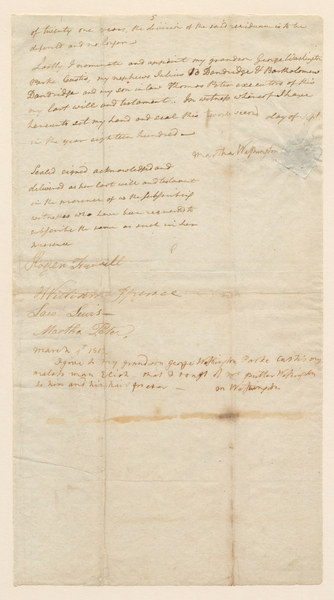 5
of twenty one years, the division of the said residuum is to be
deferred and no longer
Lastly I nominate and appoint my grandson George Washington
Parke Custis, my nephews Julius B Dandridge & Bartholomew
Dandridge and my son in law Thomas Peter executors of this
my last will and testament. In witness whereof I have
hereunto set my hand and seal this twenty second day of
in the year eighteen hundred
Martha Washington
Sealed signed acknowledged and
delivered as her last will and testament
in the presence of us the subscribing
witnesses who have been requested to
subscribe the same as such in her
presence
Roger Farrell
William Spence
Law: Lewis
Martha Peter
March 4th 1802
I give to my grandson george Washington Parke Custis my
mulatto man Elish that I bought of mr Butler Washington
to him and his heir forever
M Washington